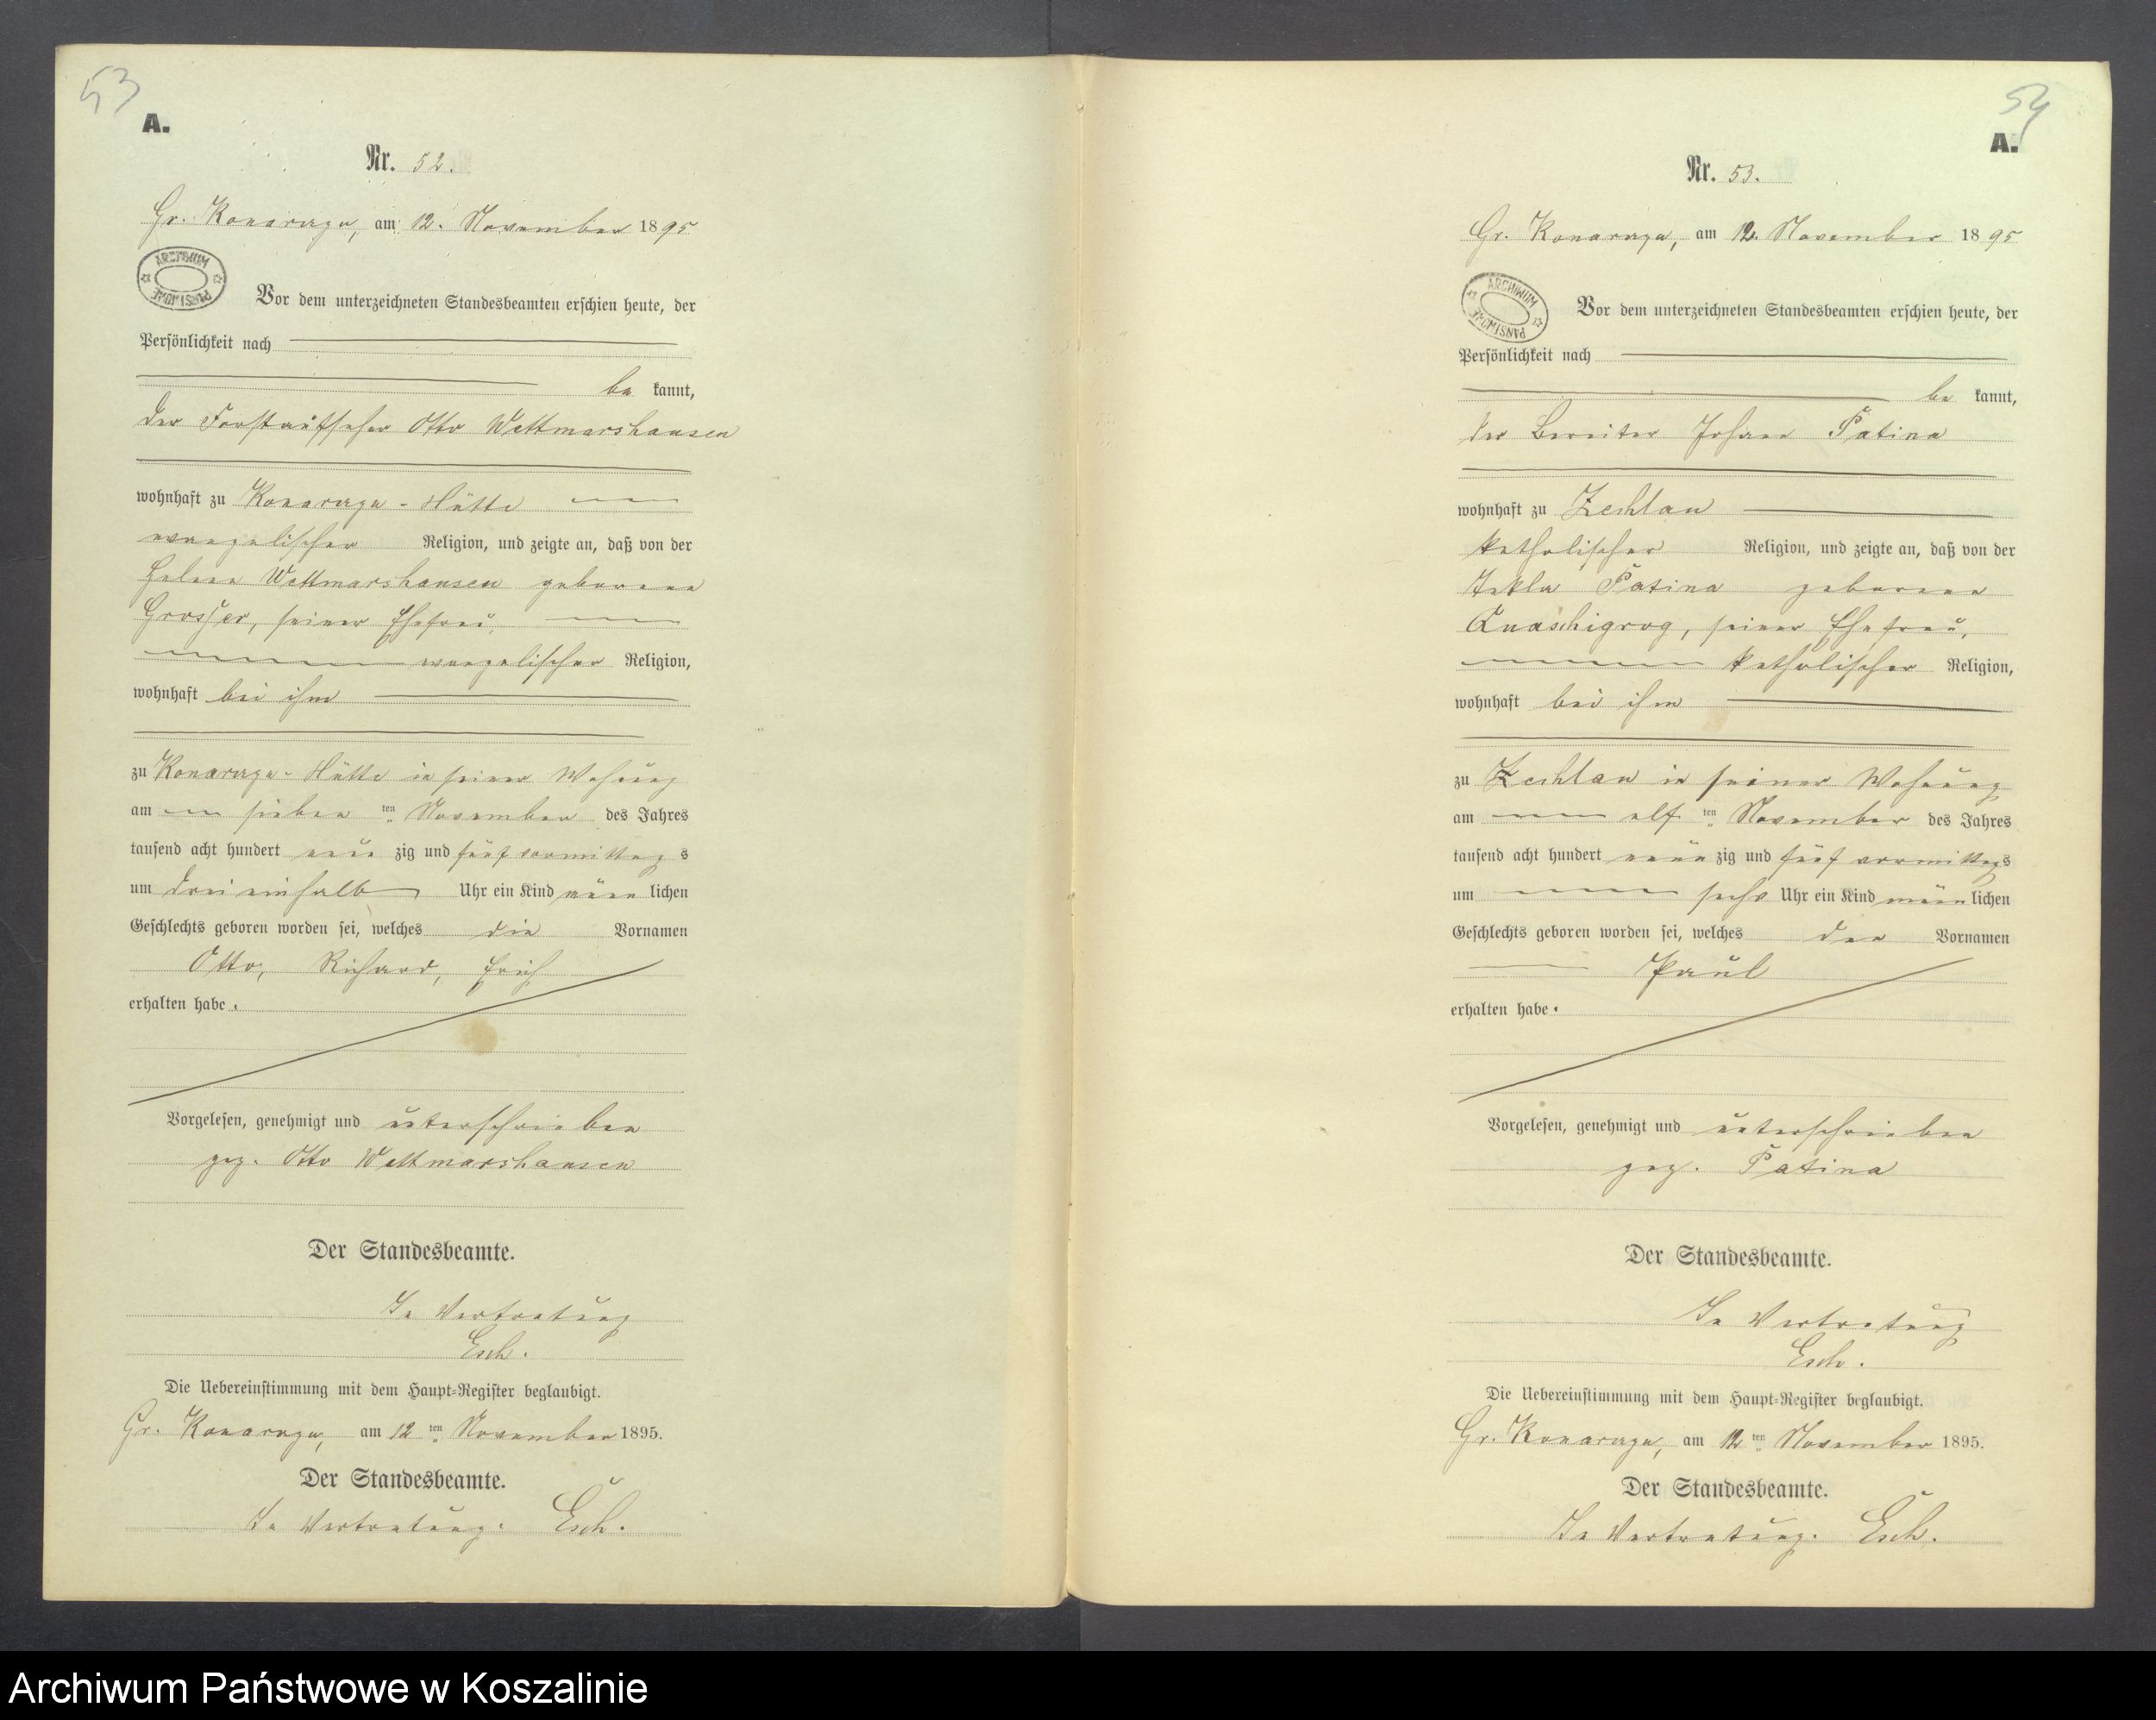 53
A.
Nr. 52.
Gr. Konarzyn, am 12. November 1895
ARCHIWUM PAŃSTWOWE
Vor dem unterzeichneten Standesbeamten erschien heute, der
Persönlichkeit nach
be kannt,
der Forstaufseher Otto Wettmarshausen
wohnhaft zu Konarzyn-Hütte
evangelischer Religion, und zeigte an, daß von der
Helene Wettmarshausen geborene
Grosser, seiner Ehefrau,
evangelischer Religion,
wohnhaft bei ihm
zu Konarzyn-Hütte in seiner Wohnung
am sieben ten November des Jahres
tausend acht hundert neun zig und fünf vormittag s
um drei einhalb Uhr ein Kind männ lichen
Geschlechts geboren worden sei, welches die Vornamen
Otto, Richard, Erich
erhalten habe.
Vorgelesen, genehmigt und unterschrieben
gez. Otto Wettmarshausen
Der Standesbeamte.
In Vertretung
Esch.
Die Uebereinstimmung mit dem Haupt-Register beglaubigt.
Gr. Konarzyn, am 12 ten November 1895.
Der Standesbeamte.
In Vertretung. Esch.
54
A.
Nr. 53.
Gr. Konarzyn, am 12. November 1895
ARCHIWUM PAŃSTWOWE
Vor dem unterzeichneten Standesbeamten erschien heute, der
Persönlichkeit nach
be kannt,
der Bereiter Johann Patina
wohnhaft zu Zechlau
katholischer Religion, und zeigte an, daß von der
Tekla Patina geborene
seiner Ehefrau,
katholischer Religion,
wohnhaft bei ihm
zu Zechlau in seiner Wohnung
am elf ten November des Jahres
tausend acht hundert neun zig und fünf vormittags
um sechs Uhr ein Kind männ lichen
Geschlechts geboren worden sei, welches den Vornamen
Paul
erhalten habe.
Vorgelesen, genehmigt und unterschrieben
gez. Patina
Der Standesbeamte.
In Vertretung
Esch.
Die Uebereinstimmung mit dem Haupt-Register beglaubigt.
Gr. Konarzyn, am 12 ten November 1895.
Der Standesbeamte.
In Vertretung. Esch.
Archiwum Państwowe w Koszalinie